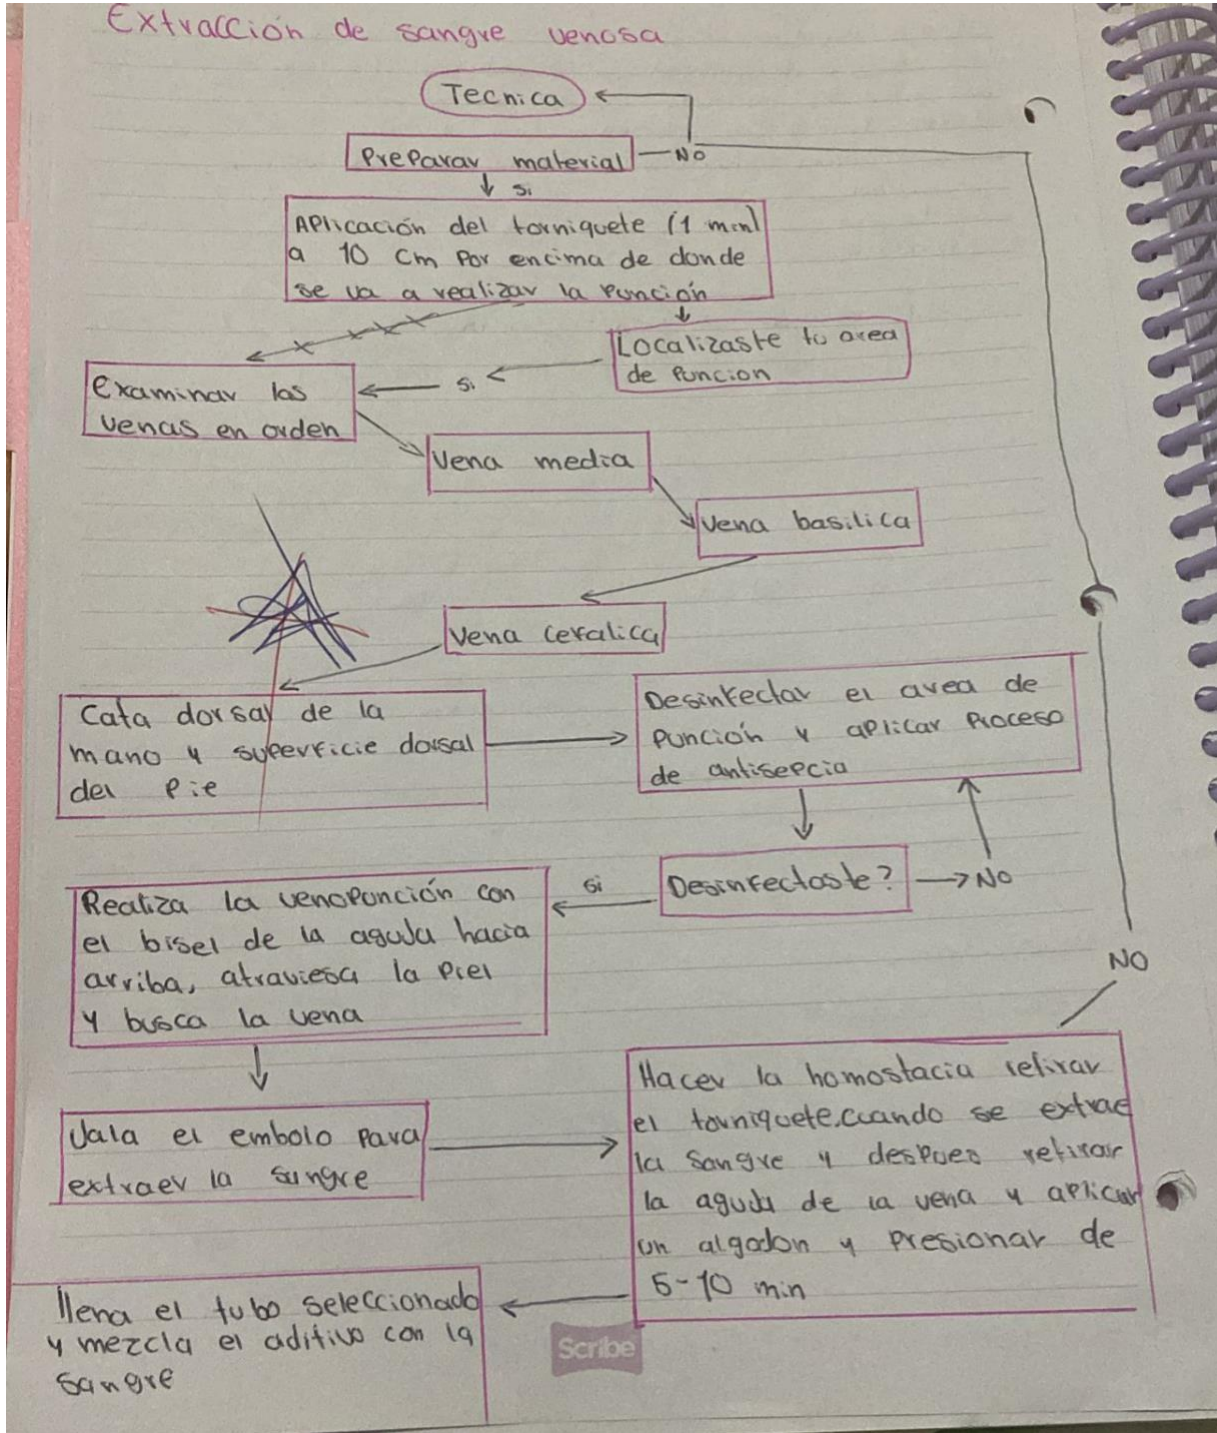 Extracción de sangre venosa
Tecnica
Preparar material
NO
Si
Aplicación del torniquete (1 min)
a 10 cm por encima de donde
se va a realizar la punción
Localizaste tu area
de puncion
Si
Examinar las
venas en orden
Vena media
Vena basilica
Vena cefalica
Cata dorsal de la
mano y superficie dorsal
del pie
Desinfectar el area de
punción y aplicar proceso
de antisepcia
Desinfectaste?
NO
Si
Realiza la venopunción con
el bisel de la aguja hacia
arriba, atraviesa la piel
y busca la vena
NO
Jala el embolo para
extraer la sangre
Hacer la homostacia retirar
el torniquete.cuando se extrae
la sangre y despues retirar
la aguja de la vena y aplicar
un algodon y presionar de
5-10 min
llena el tubo seleccionado
y mezcla el aditivo con la
sangre
Scribe